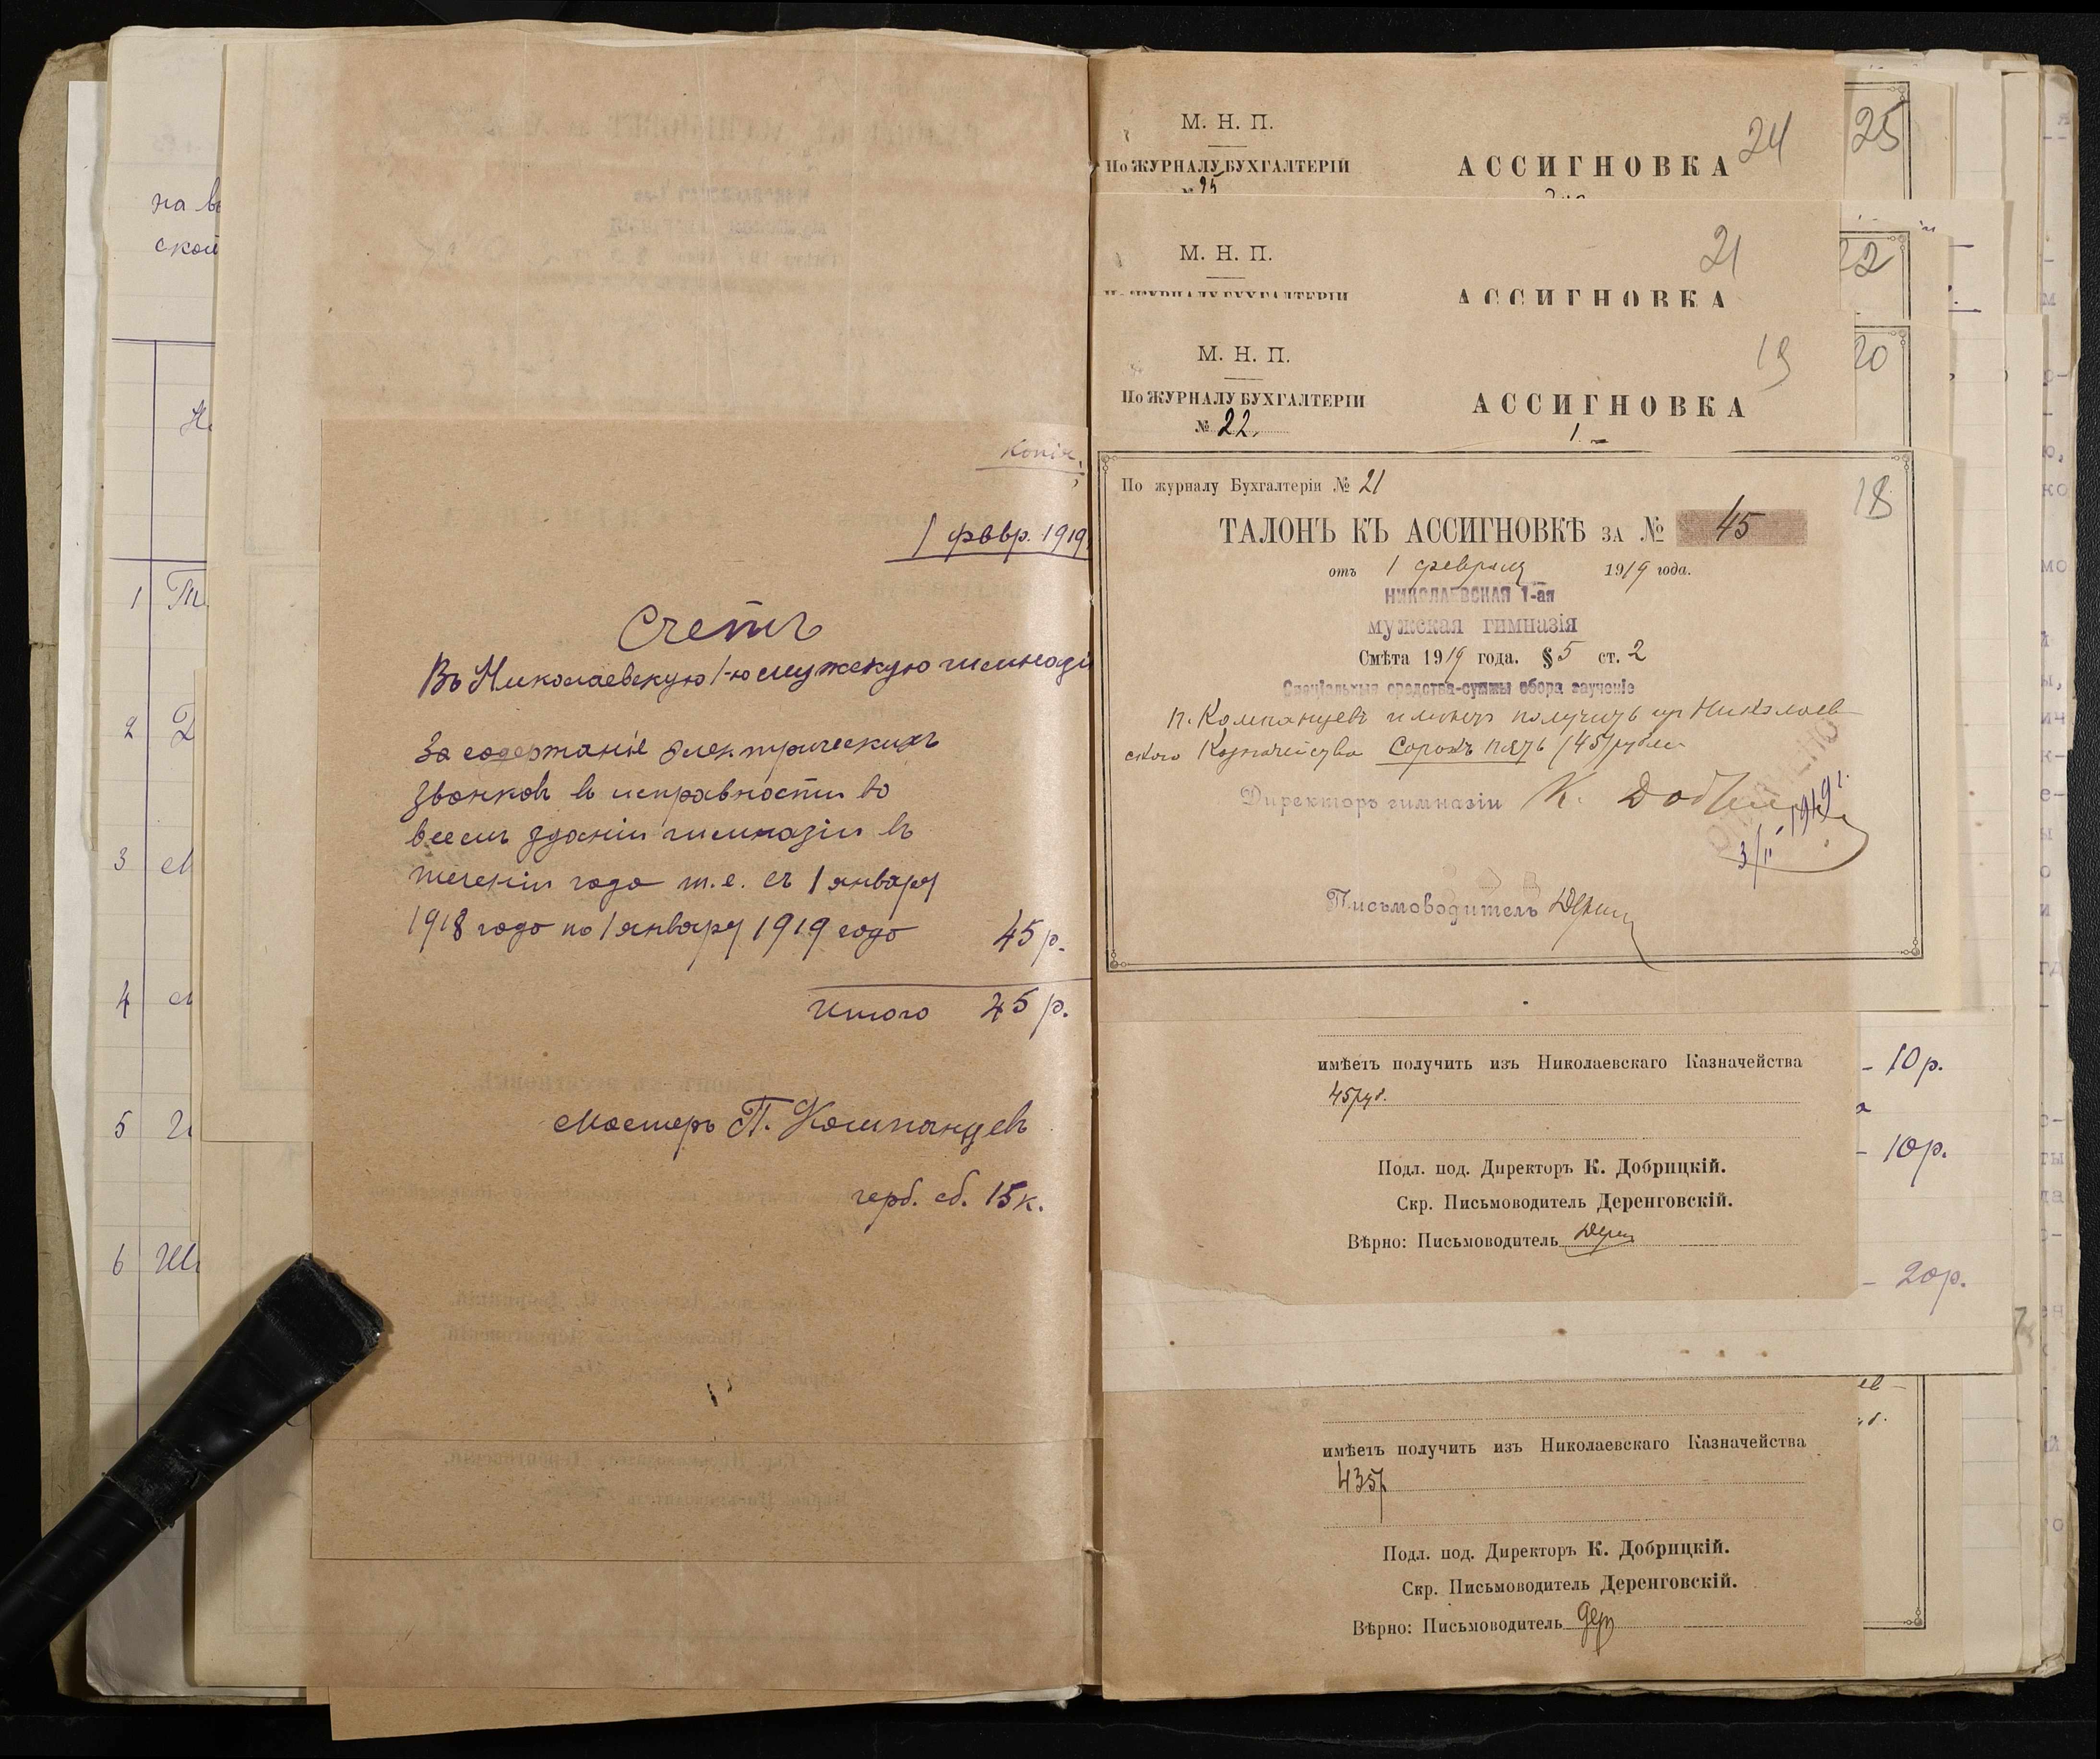 на в
ской
1
2
3
4
5
6
Копія
1 февр. 1919
Счетъ
Въ Николаевскую 1-ю мужскую гимнази
За содержаніе электрическихъ
звонковъ въ исправности во
всемъ зданіи гимназіи въ
теченіи года т.е. съ 1 января
1918 года по 1 января 1919 года 45 р.
Итого 45 р.
Мастеръ П. Компанцевъ
герб. сб. 15 к.
М. Н. П.
24
25
По ЖУРНАЛУ БУХГАЛТЕРІИ
АССИГНОВКА
М. Н. П.
21
22
АССИГНОВКА
М. Н. П.
19
20
По ЖУРНАЛУ БУХГАЛТЕРІИ
АССИГНОВКА
№ 22.
По журналу Бухгалтеріи № 21
18
ТАЛОНЪ КЪ АССИГНОВКѢ ЗА № 45
отъ 1 февраля 1919 года.
НИКОЛАЕВСКАЯ 1-ая
мужская гимназія
Смѣта 1919 года. § 5 ст. 2
Спеціальныя средства-суммы сбора за ученіе
П. Компанцевъ имѣетъ получить изъ Николаев
скаго Казначейства сорокъ пять (45) рублей
Директоръ гимназіи К. Добриц
3/II 1919 г.
Письмоводитель Дерен
имѣетъ получить изъ Николаевскаго Казначейства
45 руб.
Подл. под. Директоръ К. Добрицкій.
Скр. Письмоводитель Деренговскій.
Вѣрно: Письмоводитель Дерен
- 10 р.
- 10 р.
- 20 р.
имѣетъ получить изъ Николаевскаго Казначейства
435 р
Подл. под. Директоръ К. Добрицкій.
Скр. Письмоводитель Деренговскій.
Вѣрно: Письмоводитель Дер